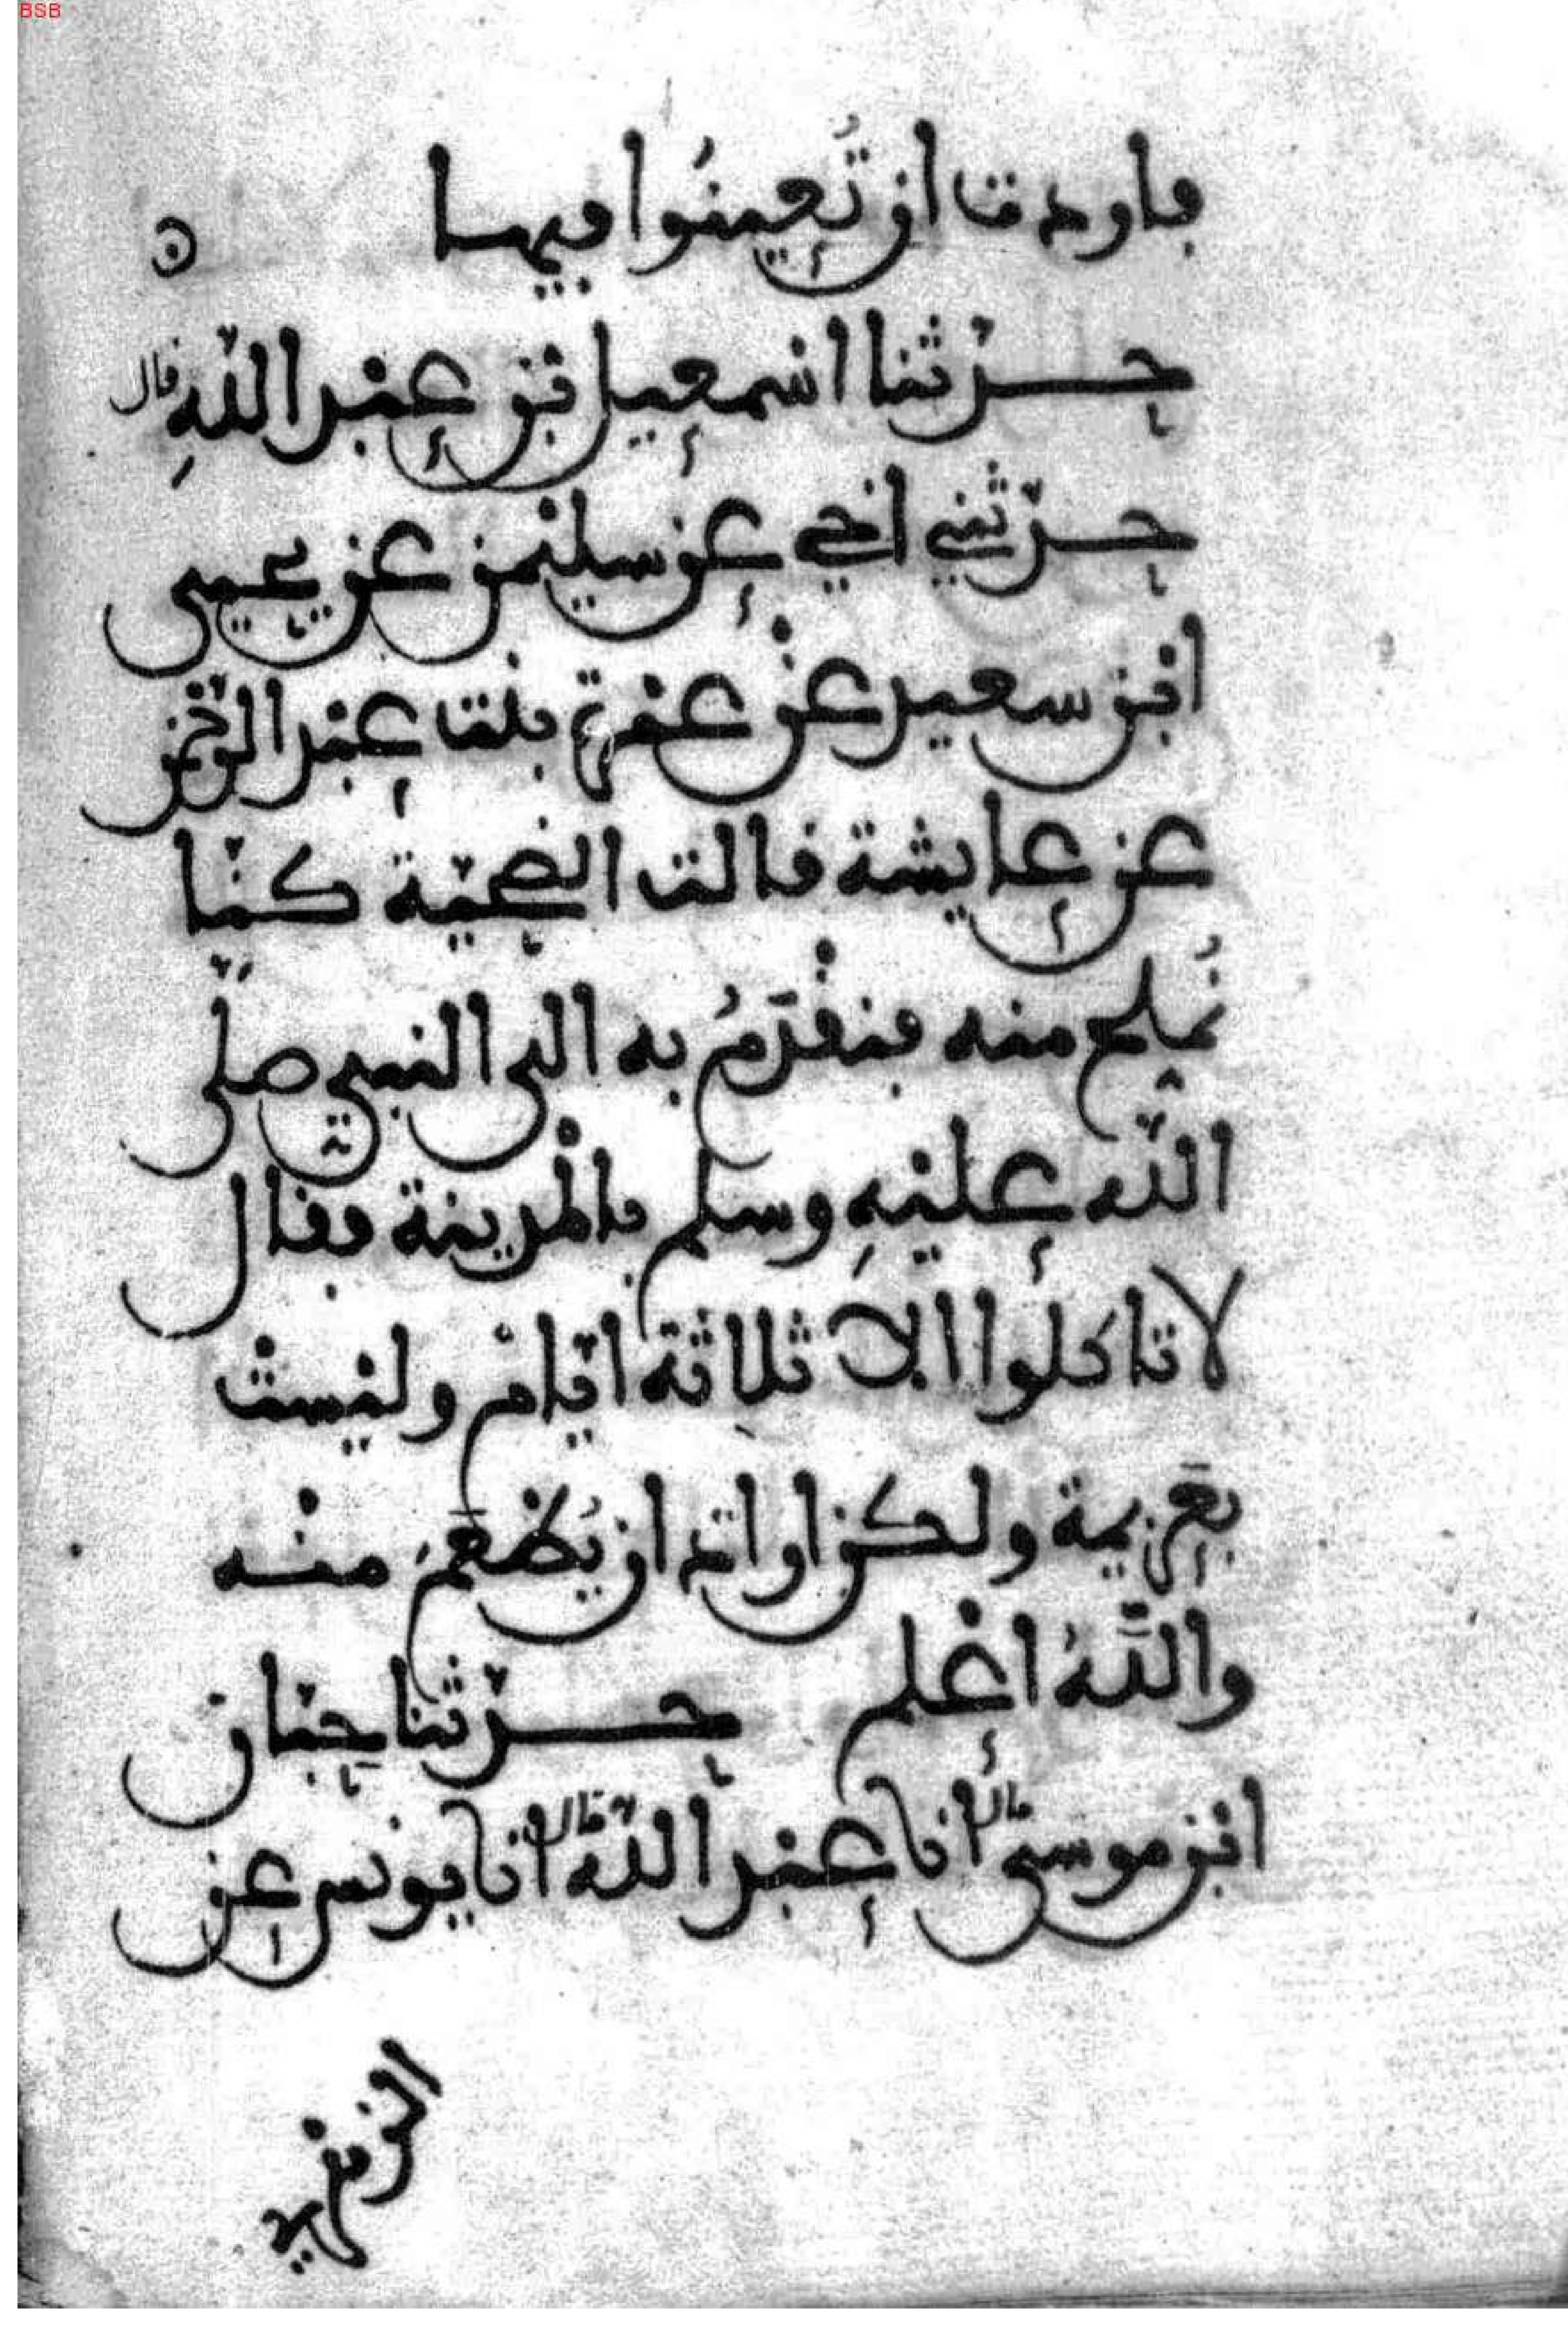 BSB
فاردت ان تُعينُوا فيها
حدّثنا اسْمعيل بْن عبْد اللّهِ قال
حدّثني اخي عن سليْمن عن يحيى
ابْن سعيد عنْ عمْرة بنْت عبْد الرّحمن
عن عايشة قالت الضحيّة كنّا
نُملح منه فنقْدَمُ به الى النبي صلّى
اللّه عليْهِ وسلم بالْمدينة فقال
لا تاكلوا الّا ثلاثة ايّام وليْستْ
بعَزيمة ولكن اراد ان يُطْعَمَ منْه
واللّهُ اعْلم حدّثنا حِبّان
ابْن موسى قال انا عبْد اللّه قال انا يونس عن
الزهْري